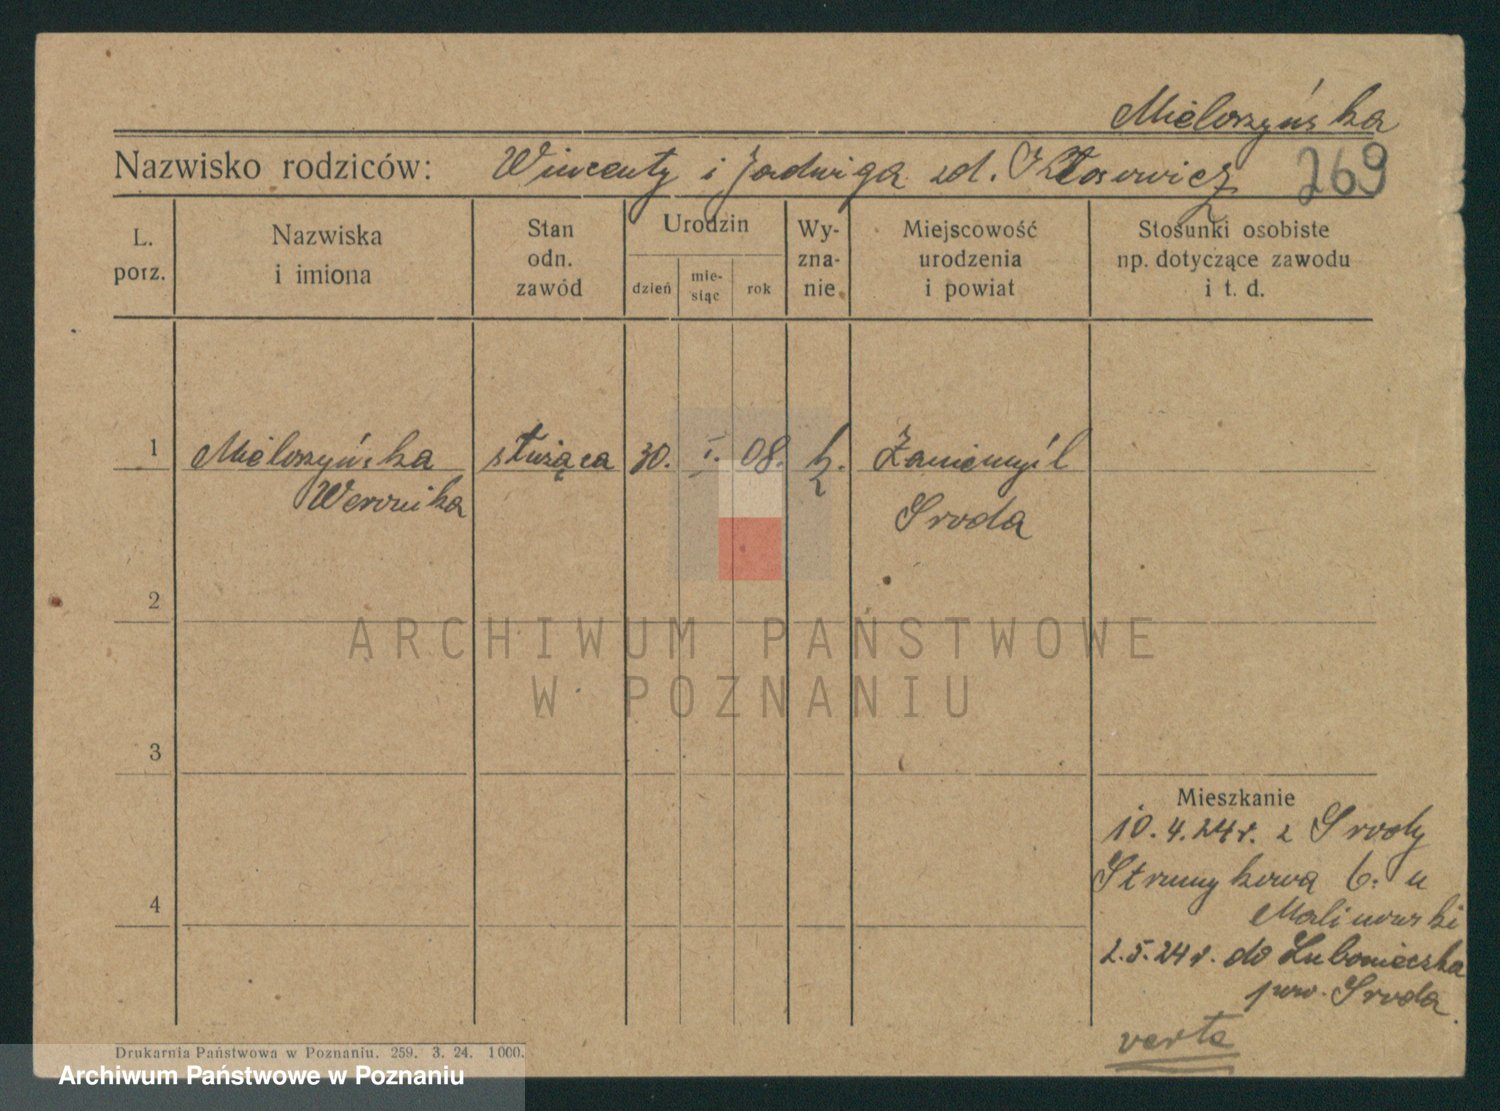 Mieloszyńska
Nazwisko rodziców: Wincenty i Jadwiga zd. Kłosowicz 269
L. porz.
Nazwiska i imiona
Stan odn. zawód
Urodzin
dzień
mie-
siąc
rok
Wy-
zna-
nie
Miejscowość urodzenia i powiat
Stosunki osobiste
np. dotyczące zawodu
i t. d.
1 Mieloszyńska służąca 30. I. 08. k. Zaniemyśl
Weronika Sroda
2
ARCHIWUM PAŃSTWOWE
W POZNANIU
3
Mieszkanie
10.4.24r. z Srody
Strumykowa 6. u
4
Malinowski
2.5.24r. do Lubonieczka
pow. Sroda.
verte
Drukarnia Państwowa w Poznaniu. 259. 3. 24. 1000.
Archiwum Państwowe w Poznaniu